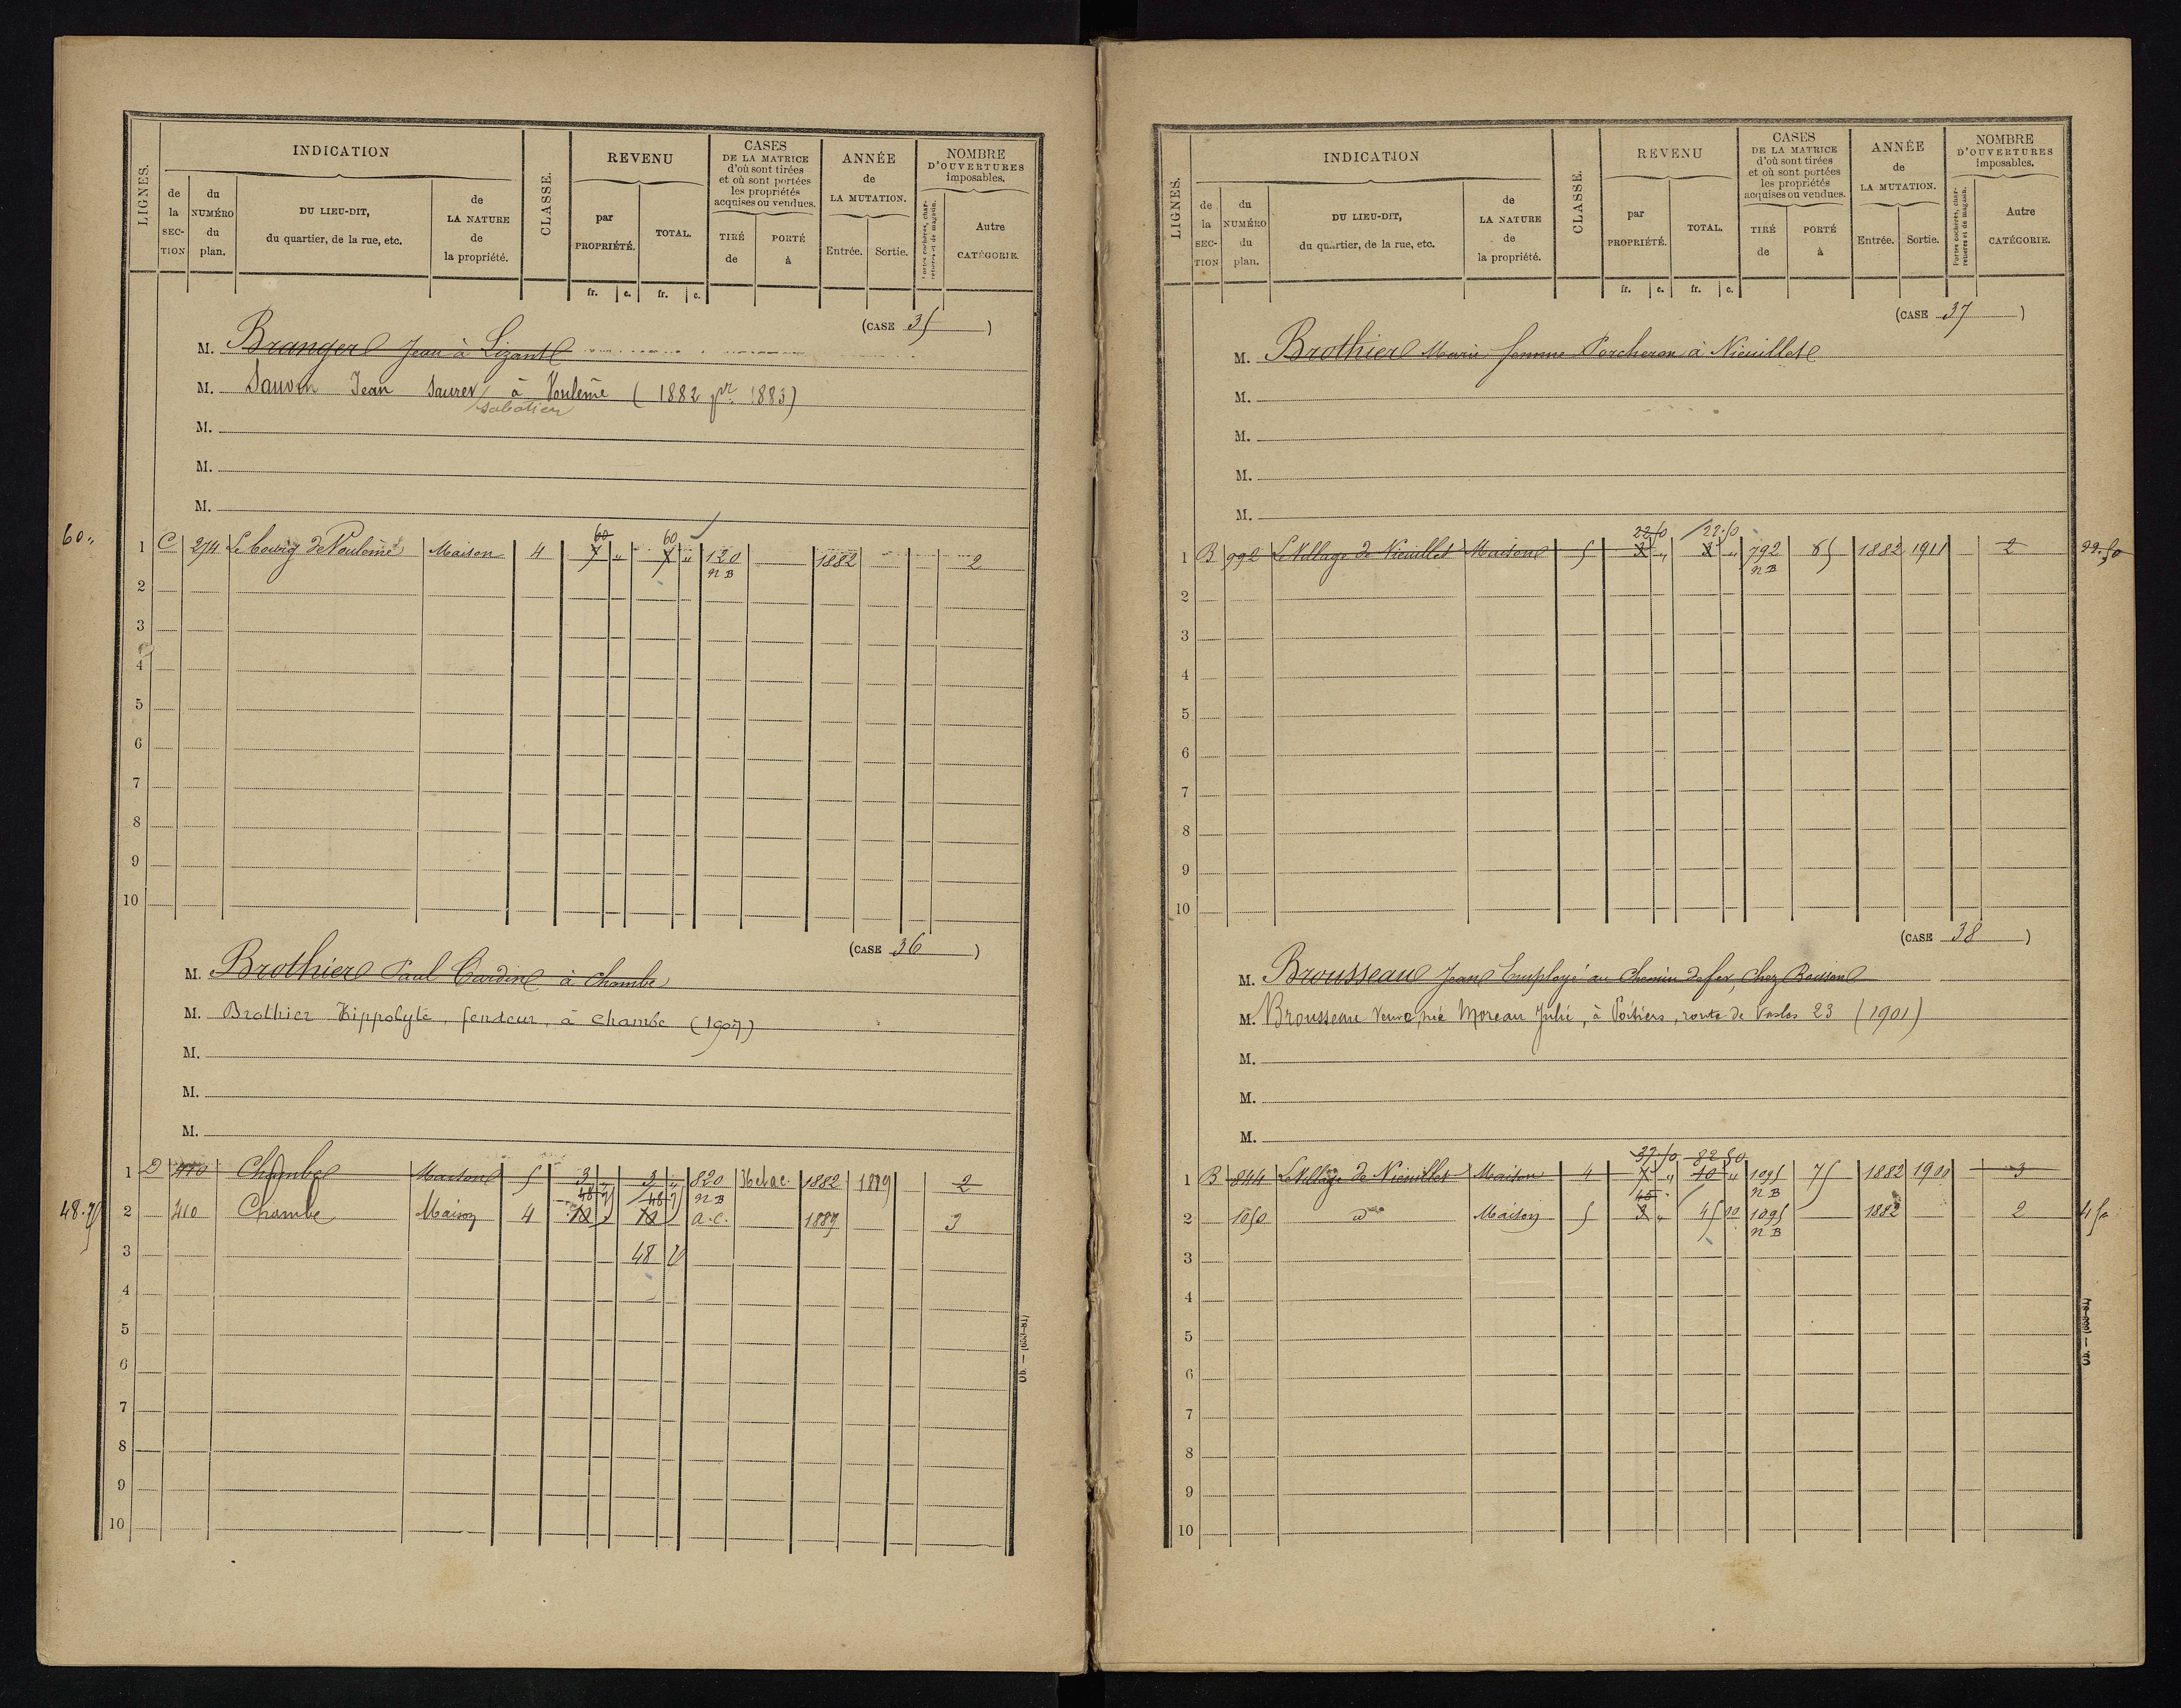 LIGNES.
INDICATION
de la SECTION
du NUMÉRO du plan.
DU LIEU-DIT, du quartier, de la rue, etc.
de LA NATURE de la propriété.
CLASSE.
REVENU
par PROPRIÉTÉ.
TOTAL.
fr. c. fr. c.
CASES DE LA MATRICE d'où sont tirées et où sont portées les propriétés acquises ou vendues.
TIRÉ de
PORTÉ à
ANNÉE de LA MUTATION.
Entrée. Sortie.
NOMBRE D'OUVERTURES imposables.
Portes cochères, charretières et de magasin.
Autre CATÉGORIE.
(CASE 35)
M. Branger Jean à Lizant
M. Sauvin Jean Laurer à Voulème (1882 pr 1883)
sabotier
M.
M.
M.
60 60
60 „
1 C 274 Le bourg de Voulème Maison 4 7 „ 7 „ 120 1882 2
n B
2
3
4
5
6
7
8
9
10
(CASE 36)
M. Brothier Paul Cardin à Chambe
M. Brothier Hippolyte, fendeur, à Chambe (1907)
M.
M.
M.
1 D 410 Chambe Maison 5 3 „ 3 „ 820 1882 1889 2
48.75 48 75 48 75 n B
2 410 Chambe Maison 4 10 10 a.c. 1889 3
3 48 75
4
5
6
7
8
9
10
Ob. — (663-81)
LIGNES.
INDICATION
de la SECTION
du NUMÉRO du plan.
DU LIEU-DIT, du quartier, de la rue, etc.
de LA NATURE de la propriété.
CLASSE.
REVENU
par PROPRIÉTÉ.
TOTAL.
fr. c. fr. c.
CASES DE LA MATRICE d'où sont tirées et où sont portées les propriétés acquises ou vendues.
TIRÉ de
PORTÉ à
ANNÉE de LA MUTATION.
Entrée. Sortie.
NOMBRE D'OUVERTURES imposables.
Portes cochères, charretières et de magasin.
Autre CATÉGORIE.
(CASE 37)
M. Brothier Marie femme Porcheron à Nieuillet
M.
M.
M.
M.
22.50 22.50
1 B 992 Le Village de Nieuillet Maison 5 3 „ 3 „ 792 65 1882 1911 2 22.50
n B
2
3
4
5
6
7
8
9
10
(CASE 38)
M. Brousseau Jean Employé au Chemin de fer, Chez Bouson
M. Brousseau Veuve, née Moreau Julie, à Poitiers, route de Vasles 23 (1901)
M.
M.
M.
37.50 82 50
1 B 844 Le Village de Nieuillet Maison 4 7 „ 10 „ 1095 75 1882 1901 3
45 n B
2 1050 d° Maison 5 3 „ 45 00 1095 1882 2 45 „
n B
3
4
5
6
7
8
9
10
Ob. — (663-81)